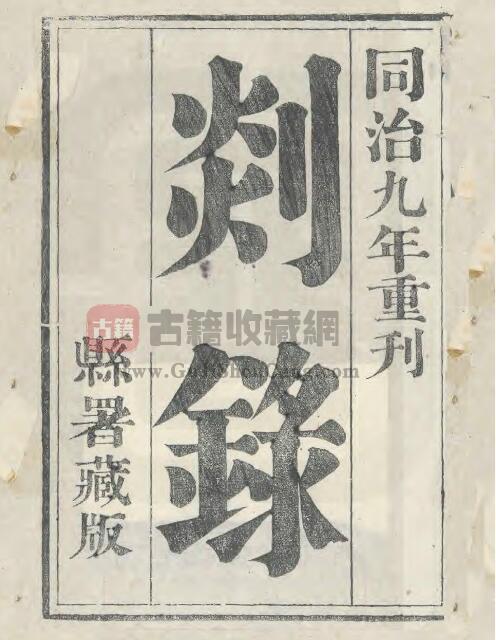 同治九年重刊
剡錄
縣署藏版
古籍
古籍收藏網
www.GuJiShouCang.com